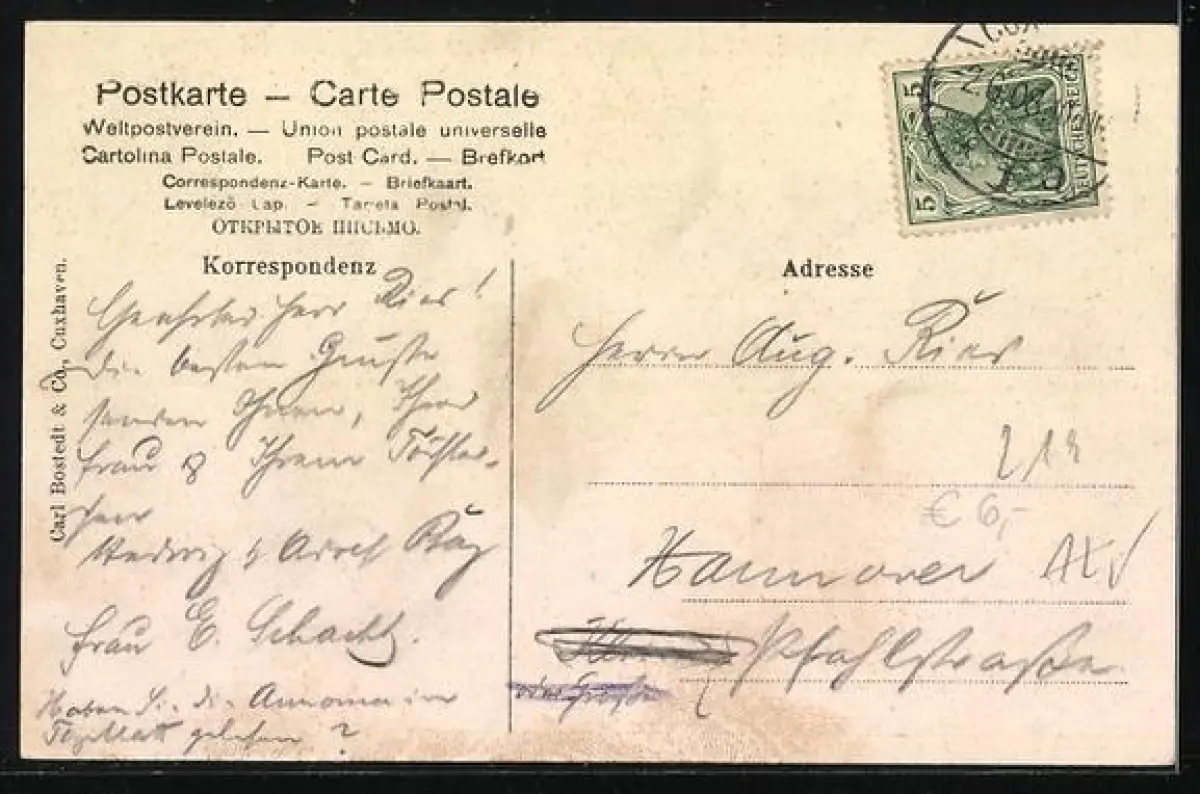 Postkarte – Carte Postale
Weltpostverein. — Union postale universelle
Cartolina Postale. Post Card. — Brefkort
Correspondenz-Karte. – Briefkaart.
Levelezö Lap. – Tarjeta Postal.
ОТКРЫТОЕ ПИСЬМО.
Korrespondenz
Carl Bostedt & Co., Cuxhaven.
Geehrter Herr Ries!
die besten Grüße
senden Ihnen, Ihrer
Frau & Ihrem
Hedwig
Frau E. Schacht.
Haben Sie die Annonce im
gelesen?
5
5
DEUTSCHES REICH
Adresse
Herrn Aug. Ries
€ 6,-
Hannover
Pfahlstraße